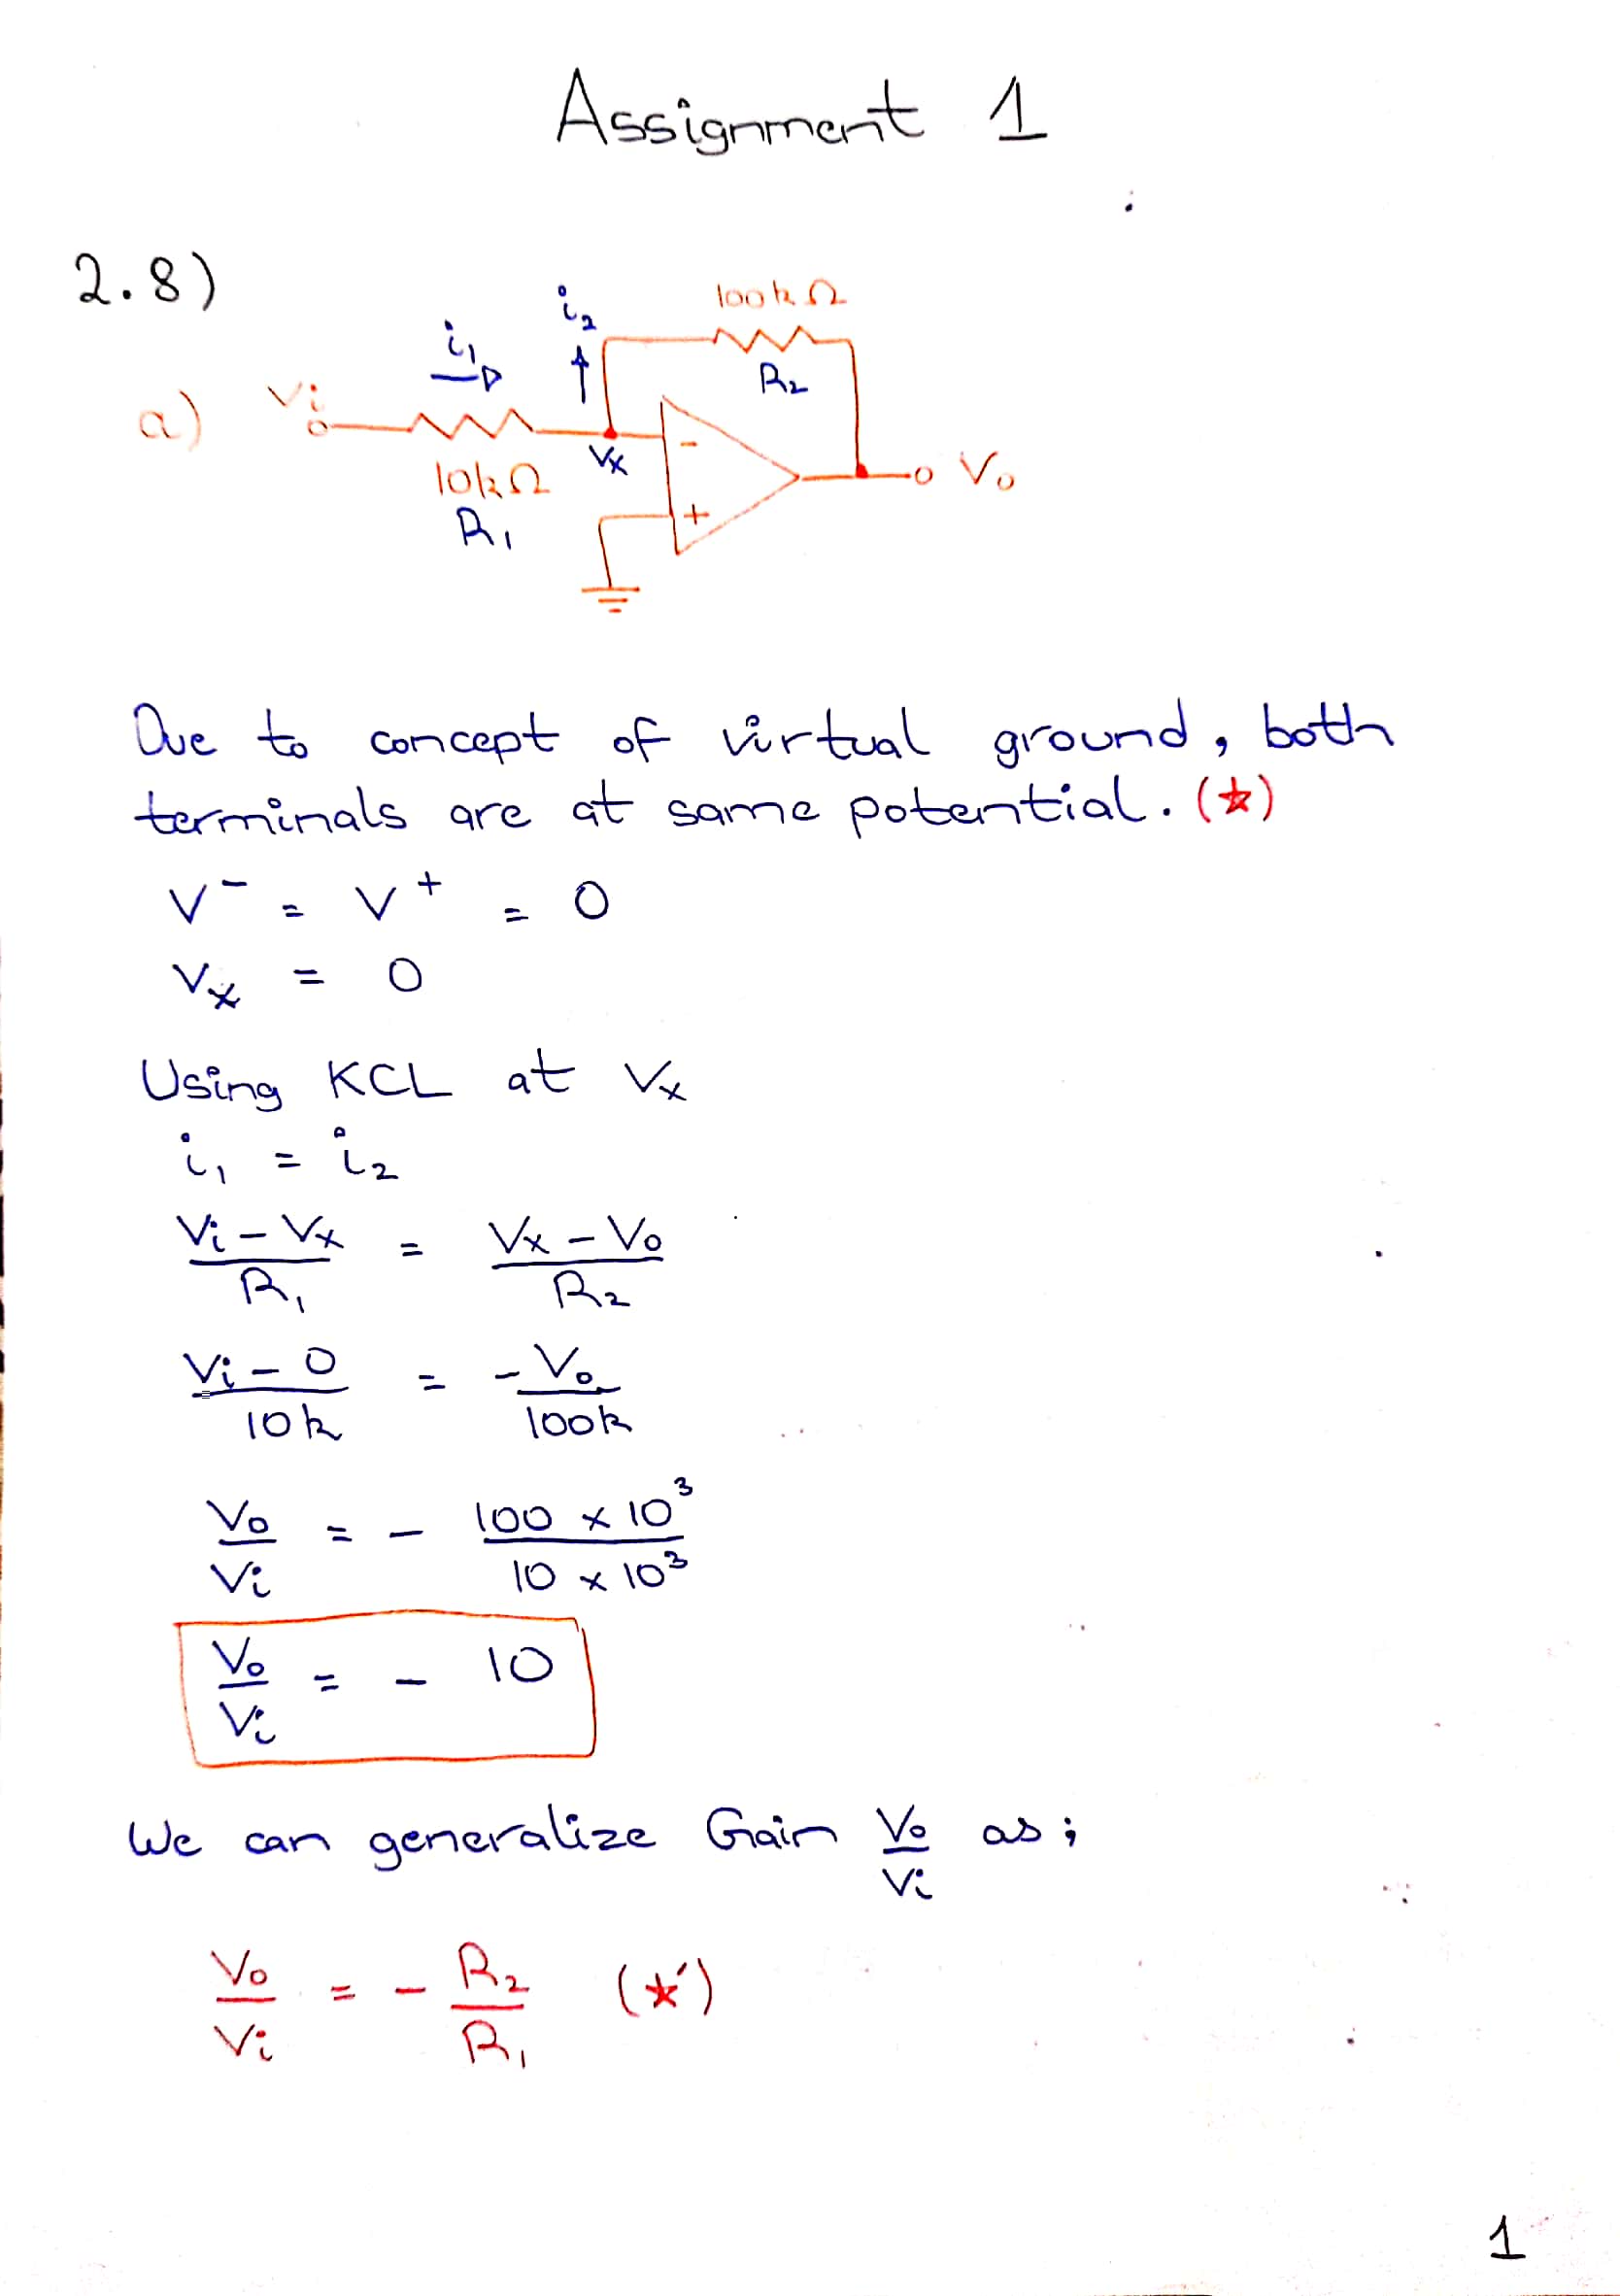 Assignment 1
2.8)
a)
Vi
i1
i2
100kΩ
R2
10kΩ
R1
Vx
-
+
Vo
Due to concept of virtual ground, both
terminals are at same potential. (★)
V⁻ = V⁺ = 0
Vx = 0
Using KCL at Vx
i1 = i2
(Vi - Vx)/R1 = (Vx - Vo)/R2
(Vi - 0)/10k = -Vo/100k
Vo/Vi = - (100 × 10³)/(10 × 10³)
Vo/Vi = - 10
We can generalize Gain Vo/Vi as;
Vo/Vi = - R2/R1 (★')
1